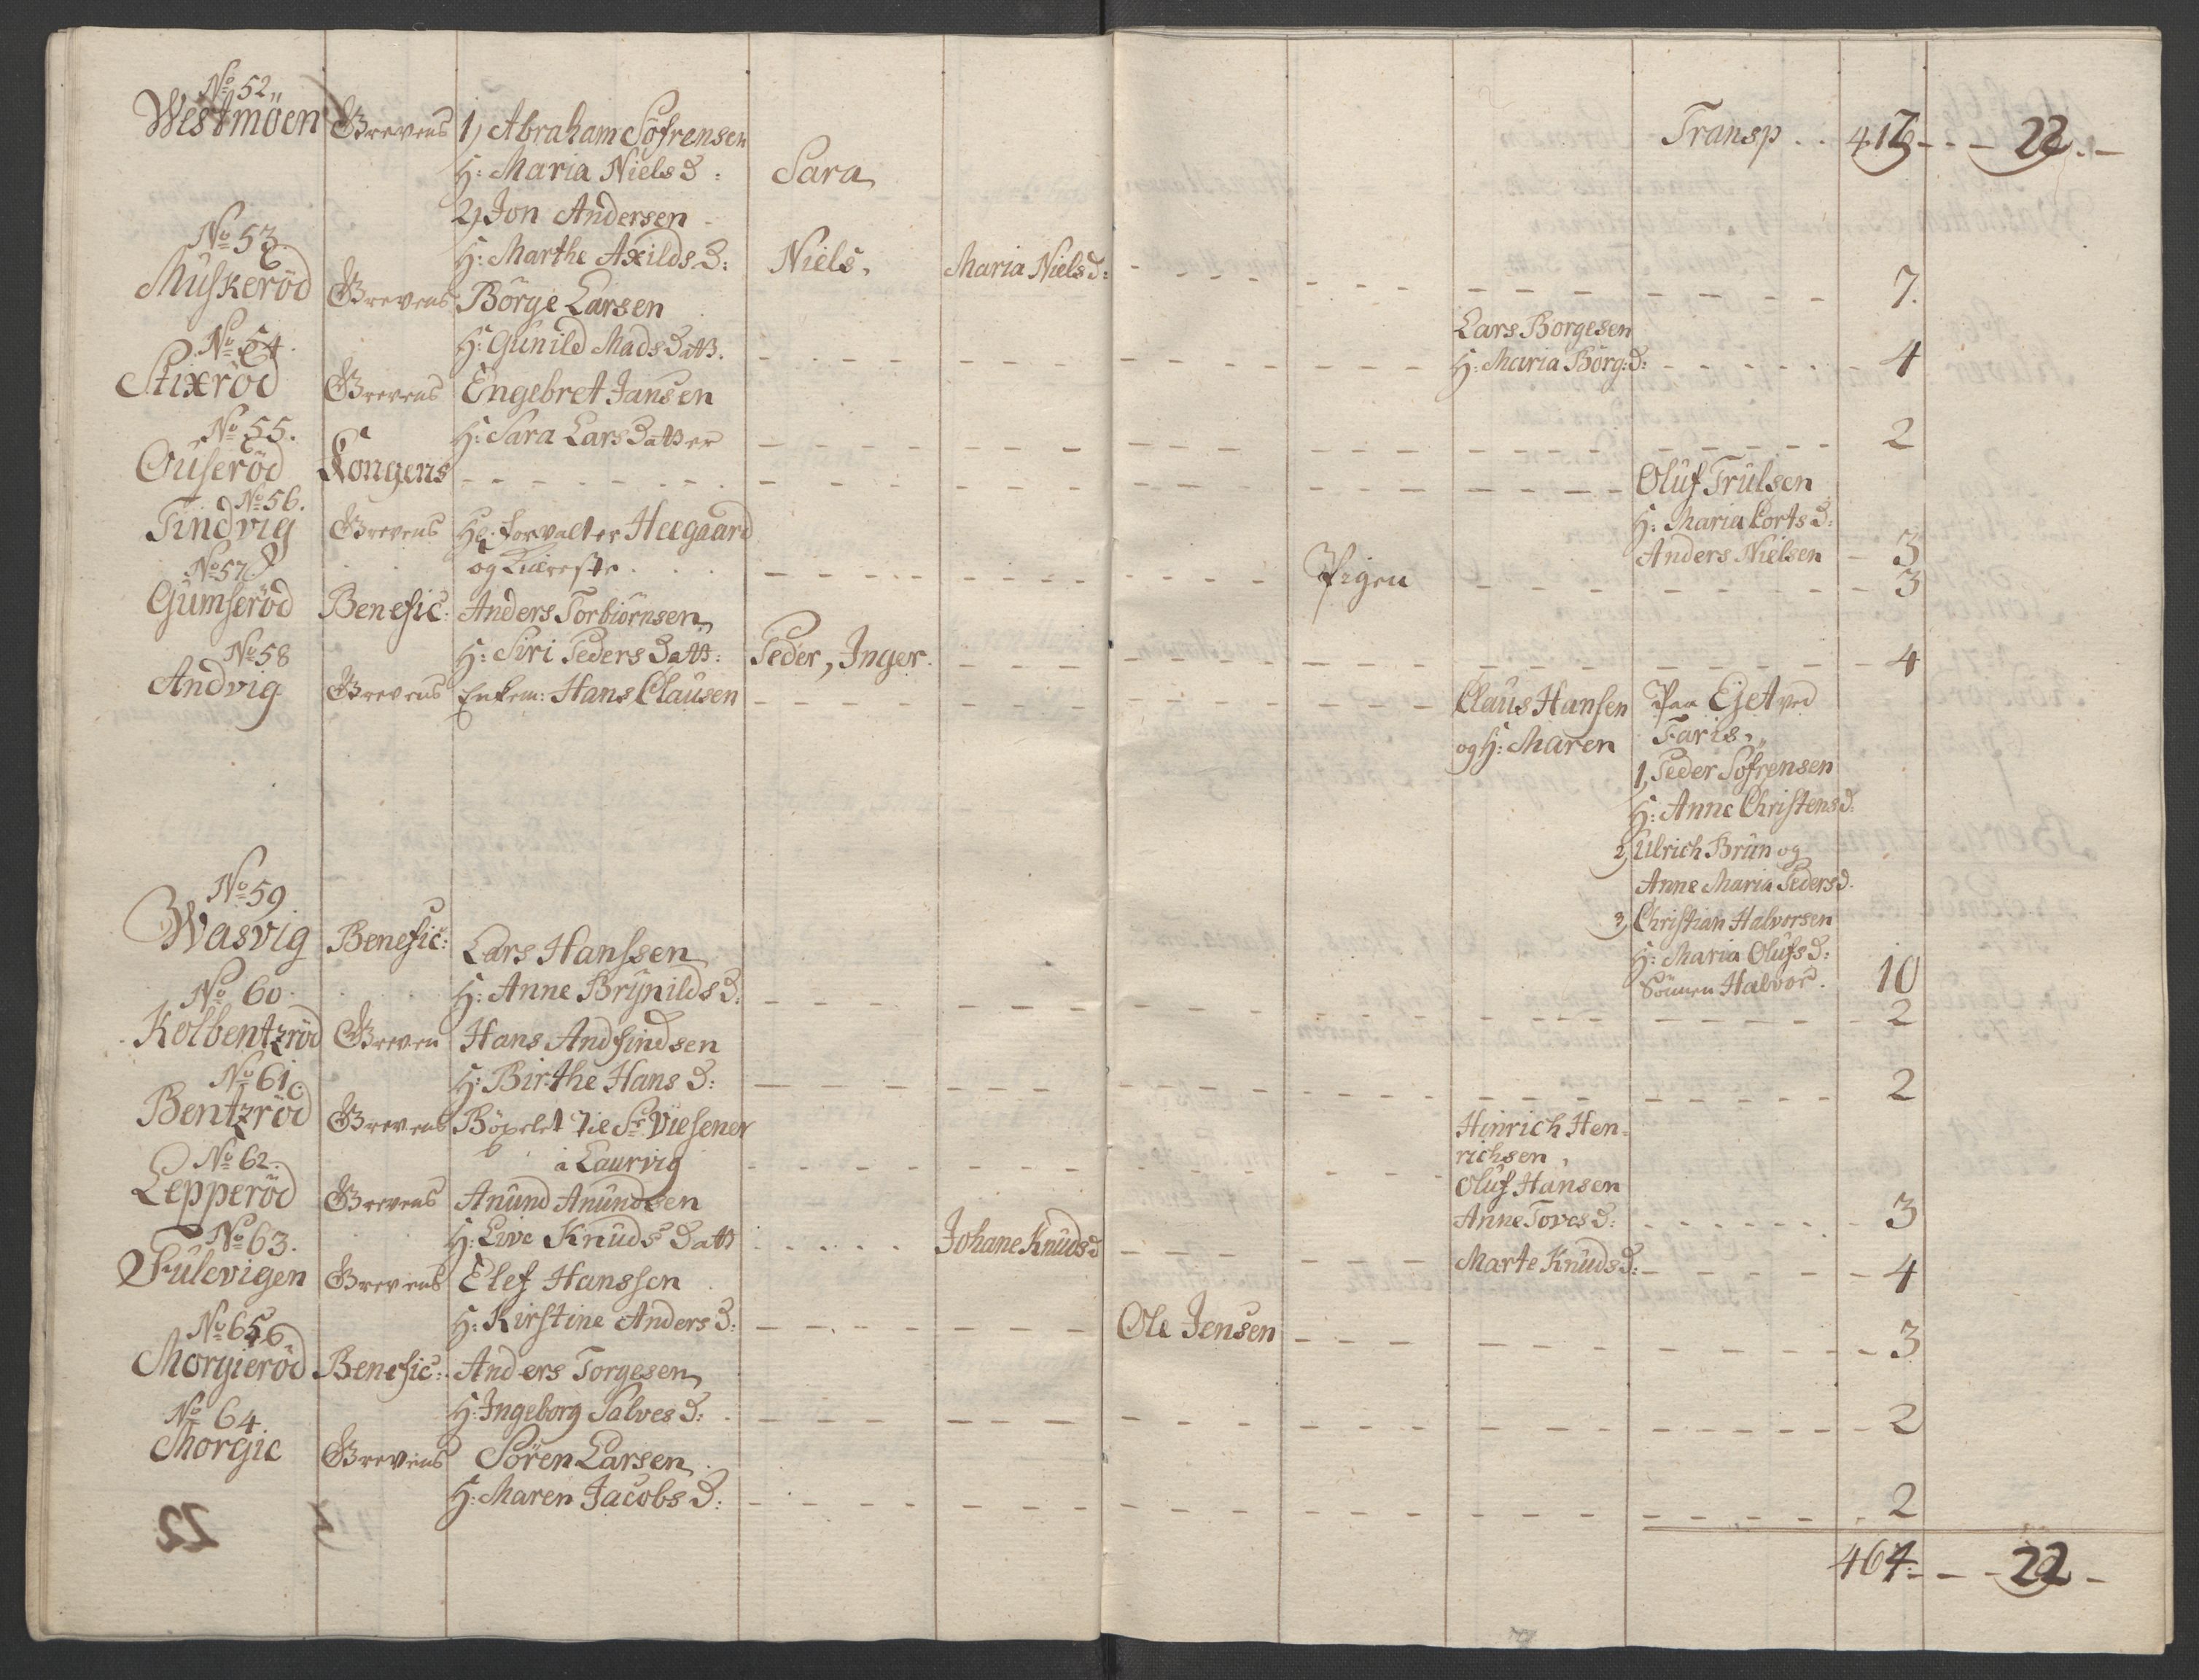 No 52
Westmöen Grevens 1, Abraham Söfrensen Transp . . 416 - - - 22 . -
H: Maria Niels D: Sara
2, Jon Andersen
No 53
H: Marthe Axilds D: Niels, Maria Niels D: 7.
Muskeröd Grevens Börge Larsen
Lars Borgesen
No 54.
H: Gunild Mads Datt. H: Maria Börg: D: 4
Stixröd Grevens Engebret Jansen
No 55.
H: Sara Lars Datter 2
Ouseröd Kongens Oluf Trulsen
No 56.
H: Maria Corts D:
Tindvig Grevens Hr. Forvalter Heegaard
Anders Nielsen - 3
og Kiæreste . Pigen 3
No 57
Gumseröd Benefic: Anders Torbiörnsen
No 58
H: Siri Peders Datt: Peder, Inger. 4
Andvig Grevens Enkem: Hans Clausen Claus Hansen Paa Ejet ved
og H: Maren Faris,
1, Peder Söfrensen
H: Anne Christens D:
2, Ulrich Brun og
Anne Maria Peders D.
3, Christian Halvorsen
H: Maria Olufs D:
Sönnen Halvor. 10
No 59
Wasvig Benefic: Lars Hanssen
No 60
H: Anne Brynilds D: 2
Kolbentzröd Greven Hans Andfindsen
No 61
H: Birthe Hans D: 2
Bentzröd Grevens Böxelet til Sr Viesener
Hinrich Hen-
richsen,
No 62.
i Laurvig
Oluf Hansen
Anne Toves D: 3
Lepperöd Grevens Anund Anundsen
No 63.
H: Live Knuds Datt Johane Knuds D Marte Knuds D: 4
Fulevigen Grevens Elef Hanssen
H: Kirstine Anders D: Ole Jensen 3
No 65
Morgieröd Benefic: Anders Torgesen
No 64
H: Ingeborg Salves D: 2
Morgie Grevens Sören Larsen
H: Maren Jacobs D: 2
464. - - - 22 -